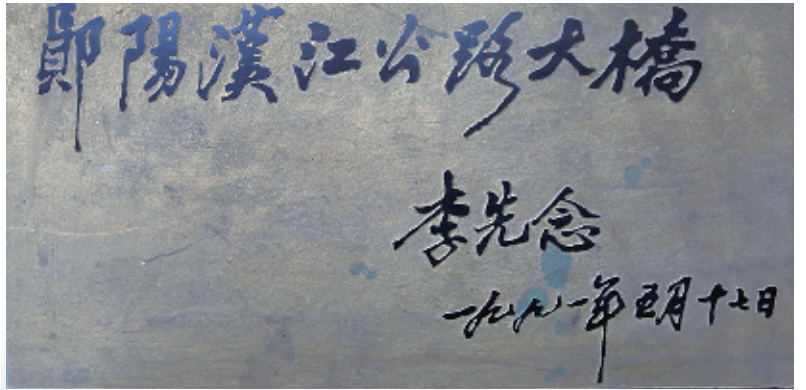 鄖陽漢江公路大橋
李先念
一九九一年五月十七日